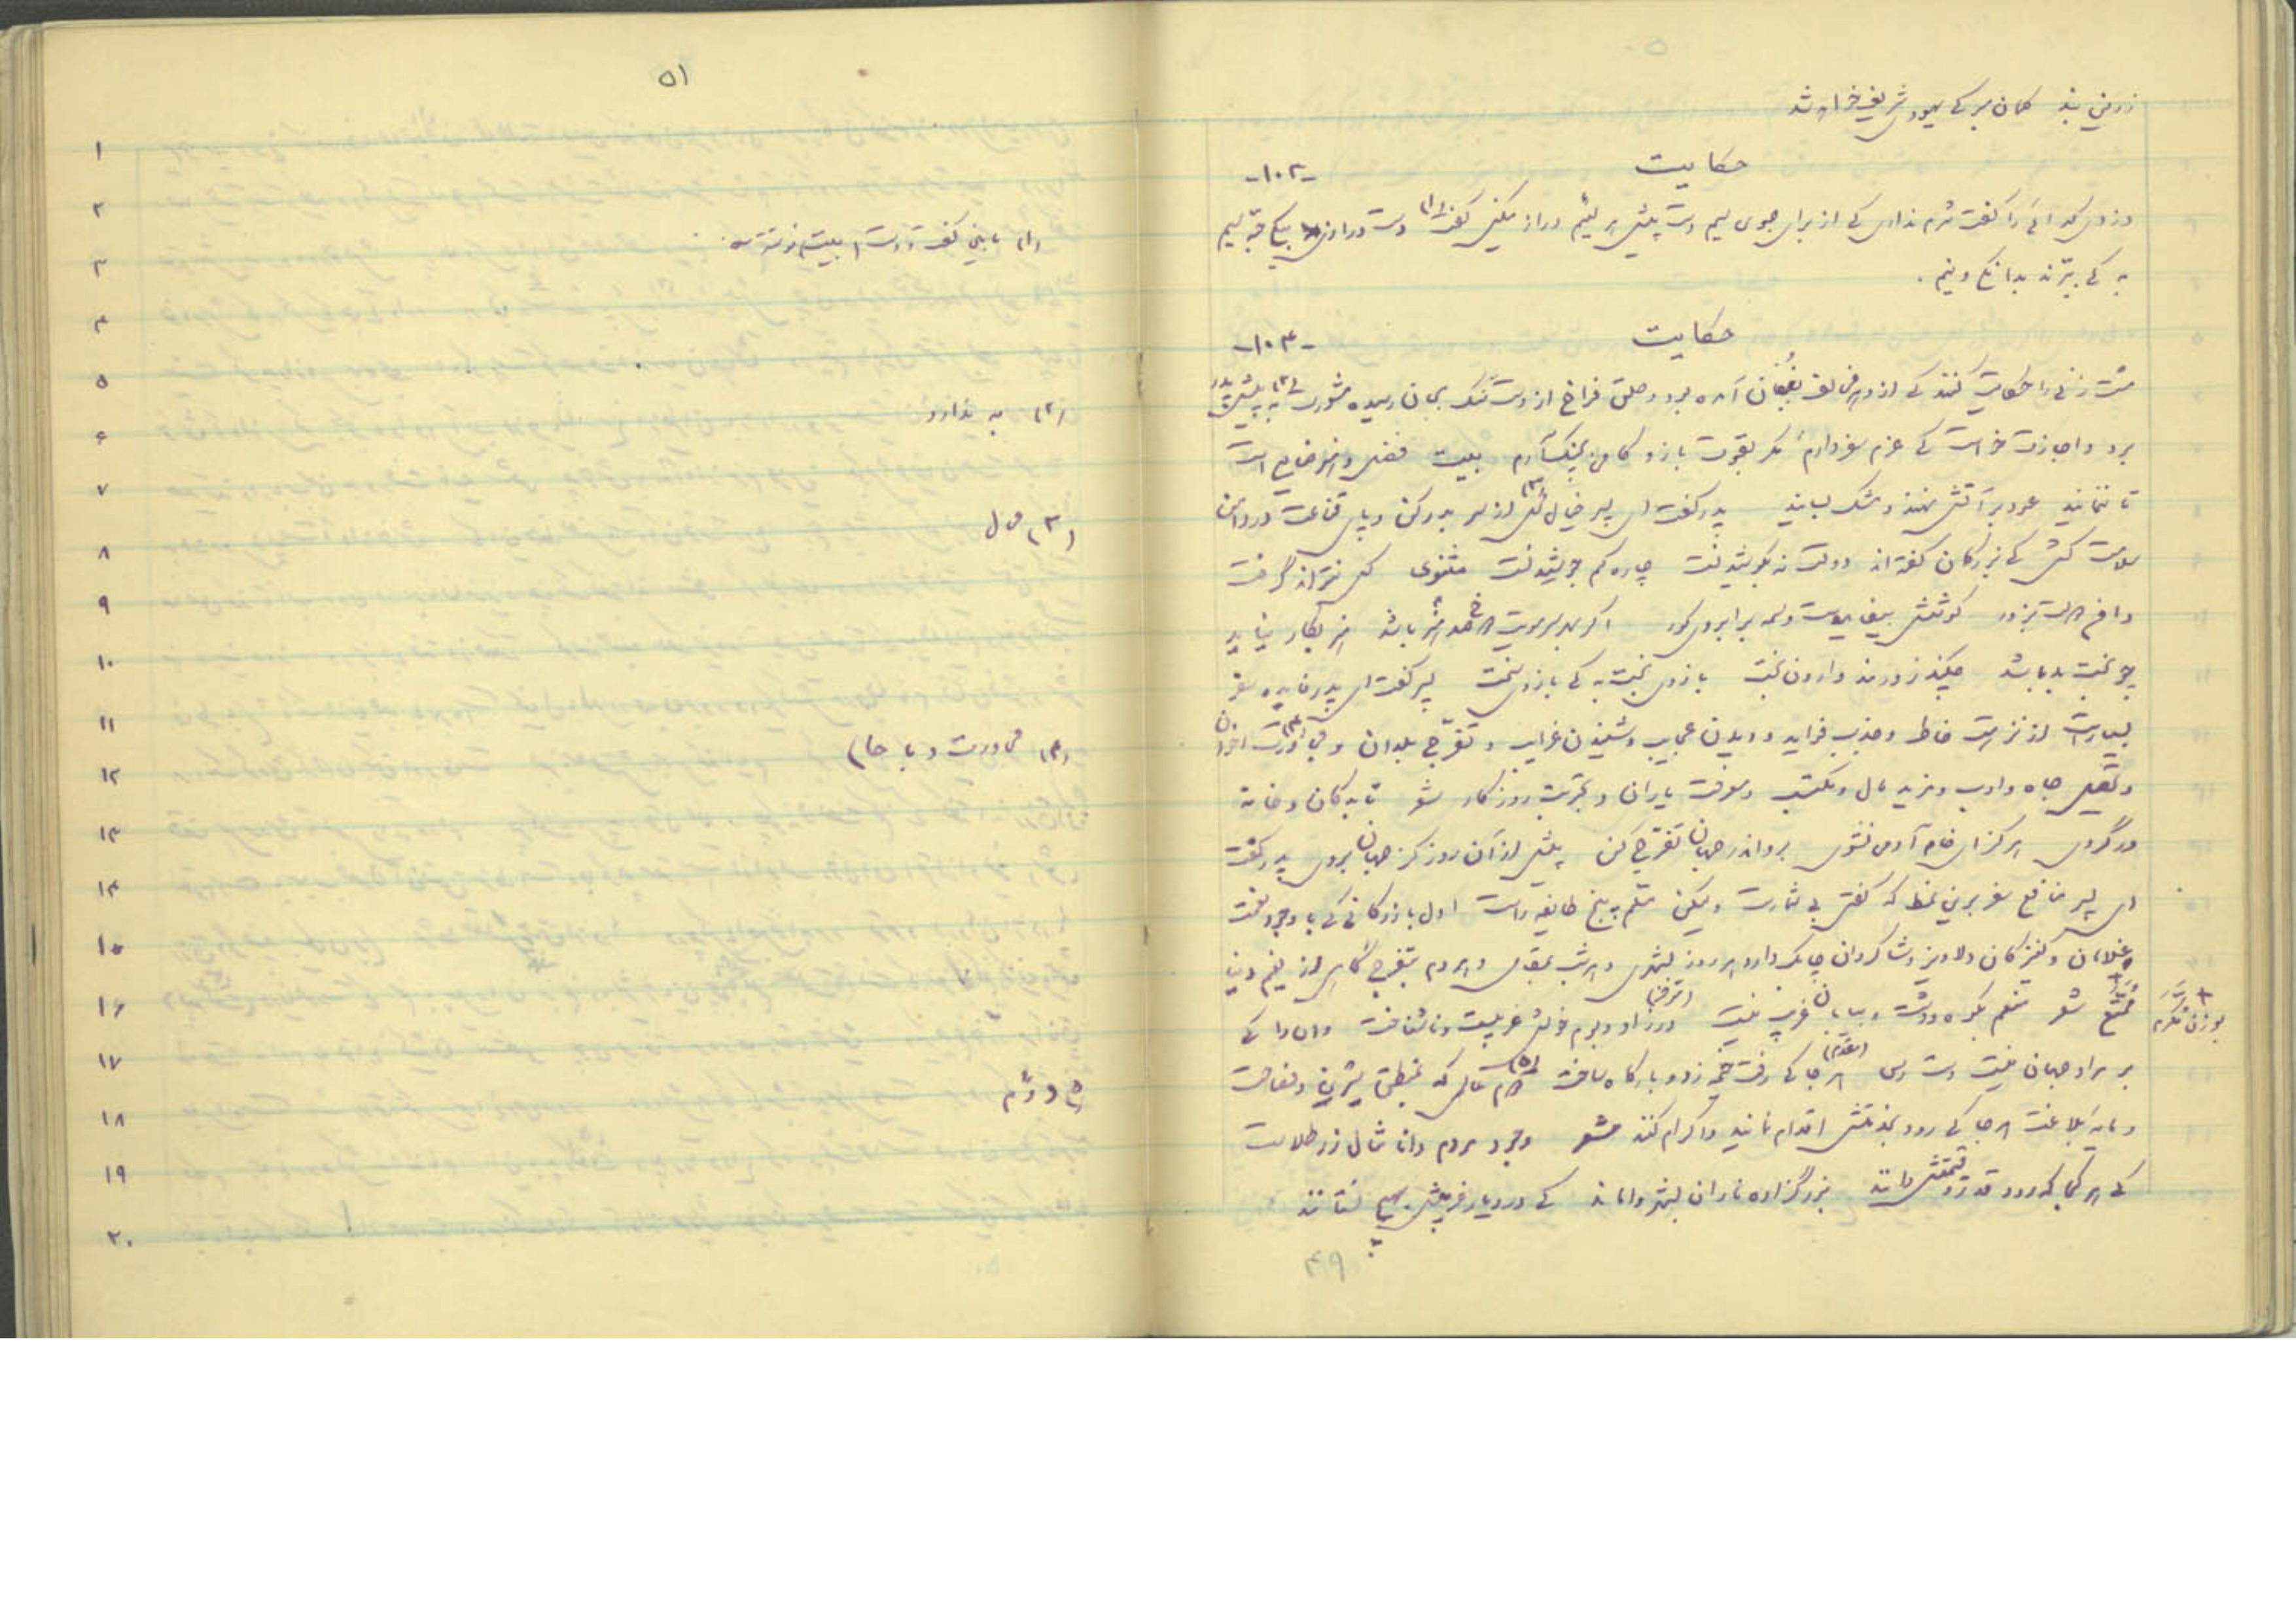 زرین بند گمان مبر که یهودی شریف خواهد شد
حکایت -۱۰۲-
دزدی گدائی را گفت شرم نداری که از برای جوی سیم دست پیش هر لئیم دراز میکنی گفت (۱) دست دراز از پی یک حبه سیم
به که ببرند بدانگی و نیم .
حکایت -۱۰۳-
مشت زنی را حکایت کنند که از دهر مخالف بفغان آمده بود و حلق فراخ از دست تنگ بجان رسیده شکایت (۲) به پیش پدر
برد و اجازت خواست که عزم سفر دارم مگر بقوت بازو کامی بچنگ آرم بیت فضل و هنر ضایع است
تا ننمایند عود بر آتش نهند و مشک بسایند پدر گفت ای پسر خیال (۳) محال از سر بدر کن و پای قناعت در دامن
سلامت کش که بزرگان گفته‌اند دولت نه بکوشیدنست چاره کم جوشیدنست مثنوی کس نتواند گرفت
دامن دولت بزور کوشش بیفایده است وسمه بر ابروی کور اگر بهر سر مویت دو صد هنر باشد هنر بکار نیاید
چو بخت بد باشد چکند زورمند وارون بخت بازوی بخت به که بازوی سخت پسر گفت ای پدر فایده سفر
بسیار است از نزهت خاطر و جذب فواید و دیدن عجایب و شنیدن غرایب و تفرج بلدان و مجاورت (۴) اخوان
و تحصیل جاه و ادب و مزید مال و مکتسب و معرفت یاران و تجربت روزگار شعر تا بدکان و خانه
در گروی هرگز ای خام آدمی نشوی برو اندر جهان تفرج کن پیش از آن روز کز جهان بروی پدر گفت
ای پسر منافع سفر برین نمط که گفتی بی شمار است ولیکن مسلم پنج طایفه راست اول بازرگانی که با وجود نعمت
و غلامان و کنیزکان دلاویز و شاگردان چابک دارد هر روز بشهری و هر شب بمقامی و هر دم بتفرج گاهی از نعیم دنیا
متمتع شعر منعم بکوه و دشت و بیابان غریب نیست در زاد و بوم خویش غریبست و ناشناخت وان را که
× بوزن مکرم
بر مراد جهان نیست دست رس هر جا که رفت خیمه زد و بارگاه ساخت (۵) دوم عالمی که بمنطق شیرین و فصاحت
و مایه بلاغت هر جا که رود بخدمتش اقدام نمایند و اکرام کنند شعر وجود مردم دانا مثال زر طلاست
که هر کجا که رود قدر و قیمتش دانند بزرگزاده نادان بشهر واماند که در دیار غریبش بهیچ نستانند
۴۹
۵۱
۱
۲
(۱)
۳
۴
۵
(۲) به ندارد
۶
۷
(۳) محال
۸
۹
۱۰
۱۱
(۴) محاورت (با حا)
۱۲
۱۳
۱۴
۱۵
۱۶
۱۷
(۵) دوّم
۱۸
۱۹
۲۰